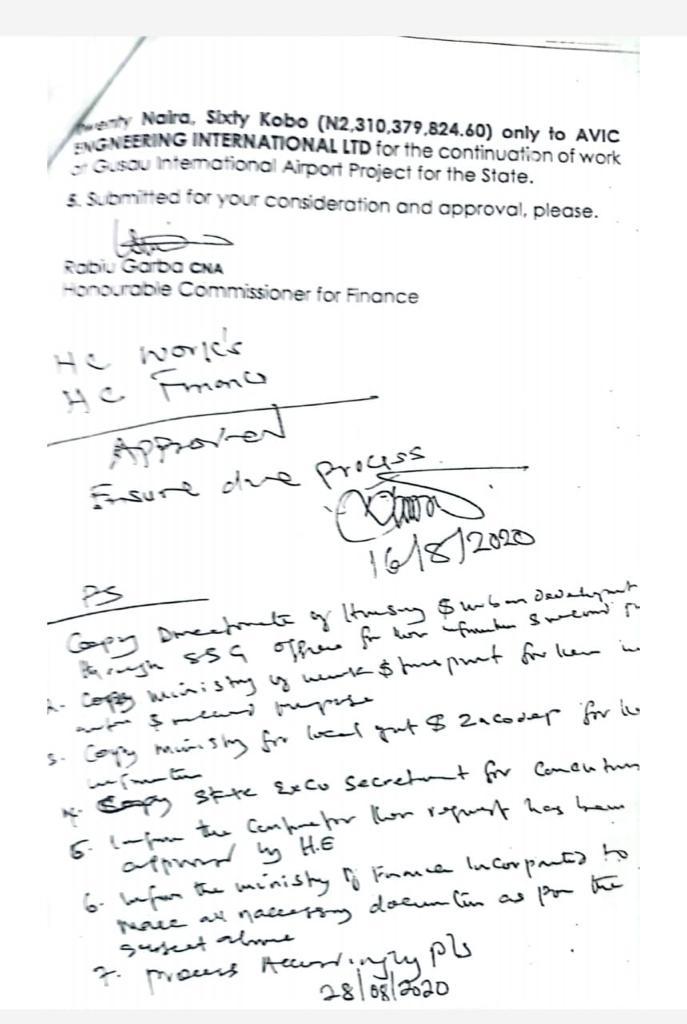 Twenty Naira, Sixty Kobo (N2,310,379,824.60) only to AVIC
ENGNEERING INTERNATIONAL LTD for the continuation of work
at Gusau International Airport Project for the State.
5. Submitted for your consideration and approval, please.
Rabiu Garba CNA
Honourable Commissioner for Finance
HC Work's
HC Finance
Approved
Ensure due process
16/8/2020
PS
Copy Directorate of Housing & urban Development
through SSG office for
Copy ministry of work & transport for
& record purpose
3. Copy ministry for local govt & Zacodep for
4. Copy State ExCo Secretariat for
5. Inform the Contractor their request has been
approved by H.E
6. Inform the ministry of Finance Incorporated to
make all naccessary as per the
subject above
7. Process Accordingly pls
28/08/2020